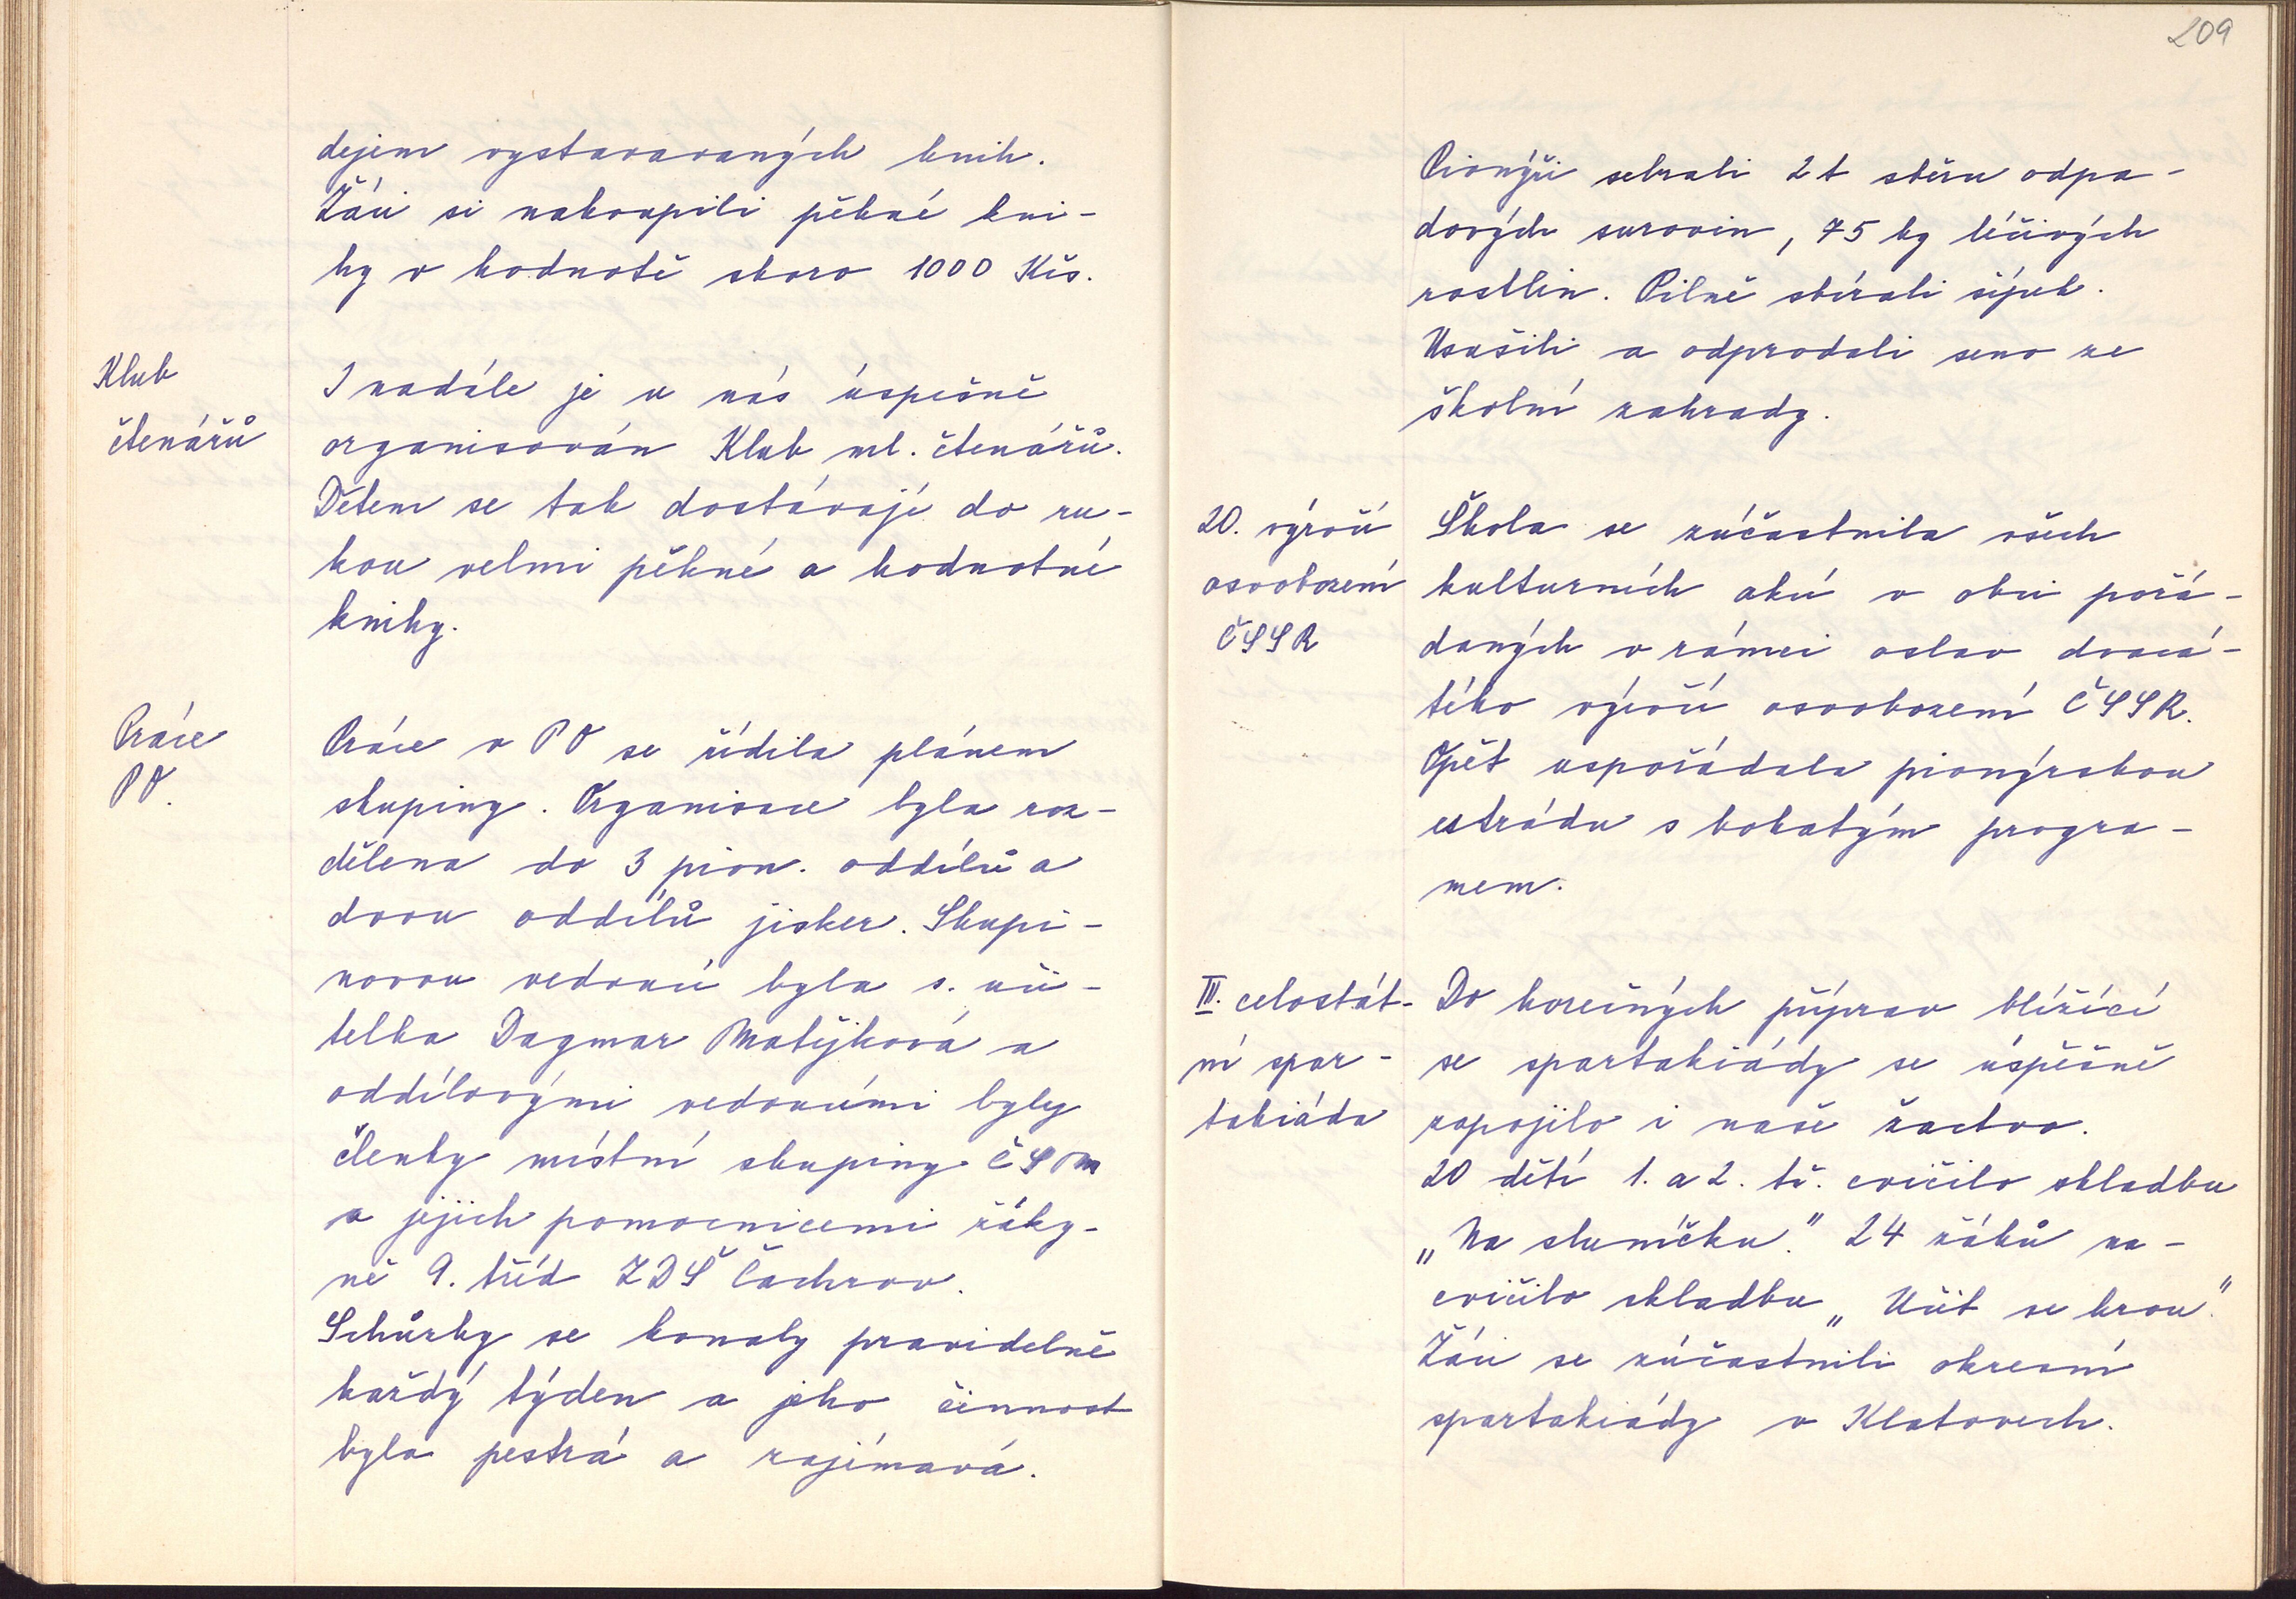 dejem vystavavaných knih.
Žáci si nakoupili pěkné kni-
hy v hodnotě skoro 1000 Kčs.
Klub
čtenářů
I nadále je u nás úspěšně
organisován Klub ml. čtenářů.
Dětem se tak dostávají do ru-
kou velmi pěkné a hodnotné
knihy.
Práce
PO.
Práce v PO se řídila plánem
skupiny. Organisace byla roz-
dělena do 3 pion. oddílů a
dvou oddílů jisker. Skupi-
novou vedoucí byla s. uči-
telka Dagmar Matějková a
oddílovými vedoucími byly
členky místní skupiny ČSM
a jejich pomocnicemi žáky-
ně 9. tříd ZDŠ Čachrov.
Schůzky se konaly pravidelně
každý týden a jeho činnost
byla pestrá a zajímavá.
209
Pionýři sebrali 2 t sběru odpa-
dových surovin, 75 kg léčivých
rostlin. Pilně sbírali šípek.
Usušili a odprodali seno ze
školní zahrady.
20. výročí
osvobození
ČSSR
Škola se zúčastnila všech
kulturních akcí v obci pořá-
daných v rámci oslav dvacá-
tého výročí osvobození ČSSR.
Opět uspořádala pionýrskou
estrádu s bohatým progra-
mem.
III. celostát-
ní spar-
takiáda
Do horečných příprav blížící
se spartakiády se úspěšně
zapojilo i naše žactvo.
20 dětí 1. a 2. tř. cvičilo skladbu
„Na sluníčku." 24 žáků na-
cvičilo skladbu „Učit se hrou."
Žáci se zúčastnili okresní
spartakiády v Klatovech.